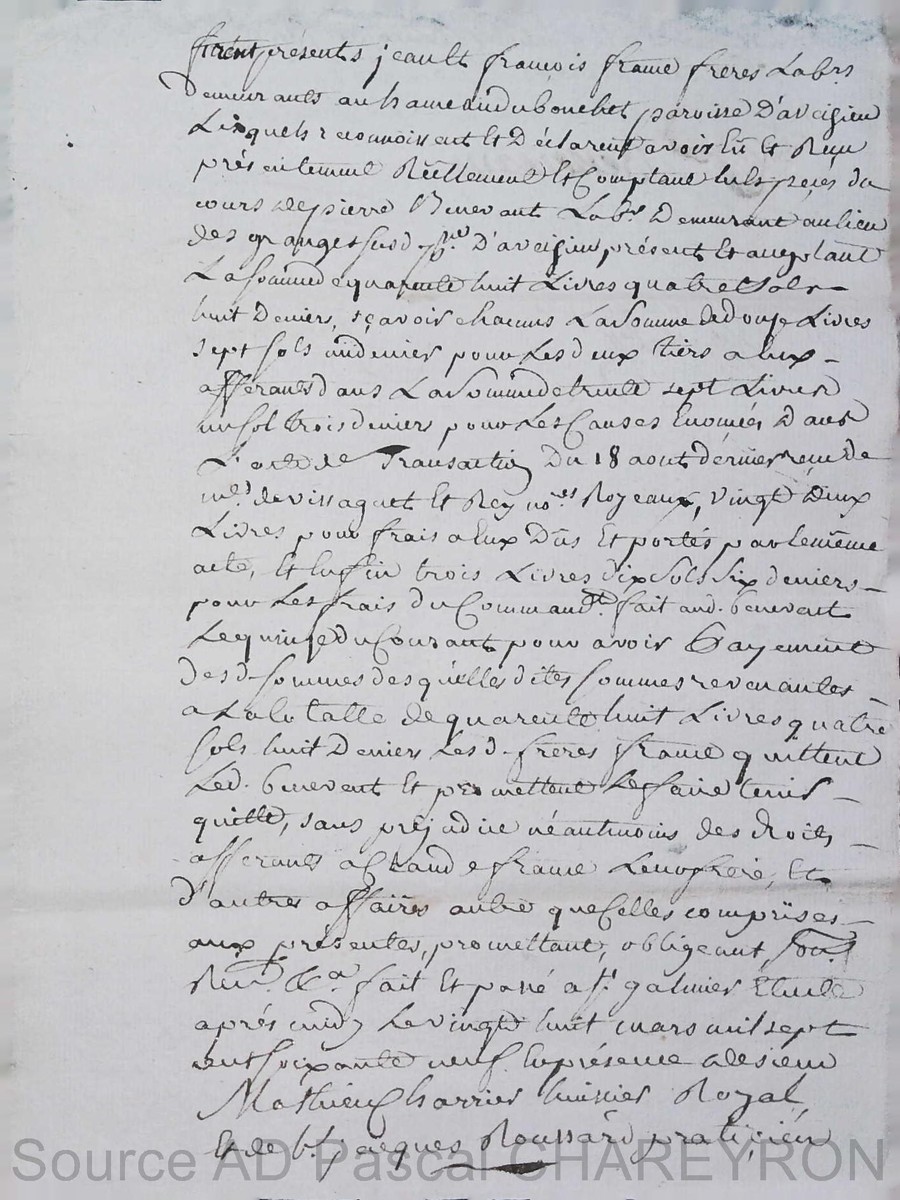 furent présents jean et françois frame frères Labrs
Demeurants au hameau du bouchet paroisse D'aveisieu
Lesquels reconnoissent Et Déclarent avoir Eü Et Reçu
présentement Réellement Et Comptant En Espèces du
cours de pierre Benevant Labr Demeurant au lieu
des granges susd. psse D'aveisieu présent Et acceptant
La somme de quarante huit Livres quatre sols
huit Deniers, sçavoir chacuns La somme de douze Livres
sept sols un denier pour Les deux tiers a Eux
afférants dans La somme de trente sept Livres
un sol trois deniers pour Les Causes Enoncées Dans
L'acte de Transaction Du 18 aout dernier reçu de
mes devissaguet Et Rey nores Royeaux, vingt Deux
Livres pour frais a Eux Dûs Et portés par le même
acte, Et Enfin trois Livres dix sols six deniers
pour Les frais du Commandt fait aud. benevent
Le quinze du Courant pour avoir Payement
des d. sommes desquelles dites sommes revenantes
a La totalle de quarente huit Livres quatre
sols huit Deniers Les d. frères frame quittent
Led. benevent Et promettent Le faire tenir
quitte, sans préjudice néantmoins des droits
afferants a Claude frame Leur frere, Et
D'autres affaires autre que Celles comprises
aux présentes, promettant, obligeant,
Rent. &a fait Et passé a st galmier Etude
après midy Le vingt huit mars mil sept
cent soixante neuf En présence de sieur
Mathieu Charrier huissier Royal
Et de st jacques Roussard praticien
Source AD Pascal CHAREYRON